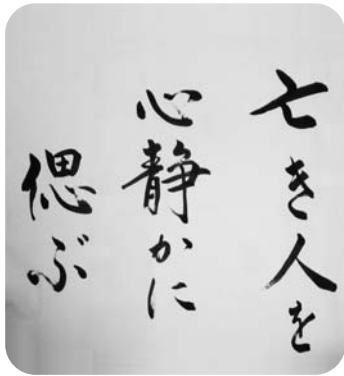 亡き人を
心静かに
偲ぶ